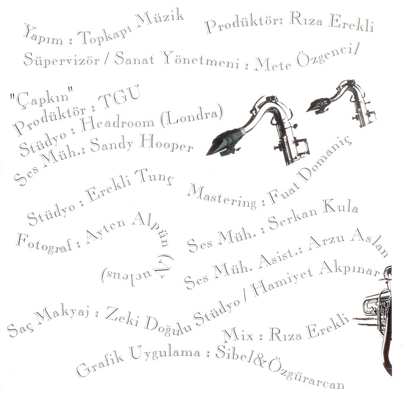 Yapım : Topkapı Müzik
Prodüktör: Rıza Erekli
Süpervizör / Sanat Yönetmeni : Mete Özgencil
"Çapkın"
Prodüktör : TGU
Stüdyo : Headroom (Londra)
Ses Müh.: Sandy Hooper
Stüdyo : Erekli Tunç
Mastering : Fuat Domaniç
Fotograf : Ayten Alpün
Ses Müh. : Serkan Kula
Ses Müh. Asist.: Arzu Aslan
Saç Makyaj : Zeki Doğulu Stüdyo / Hamiyet Akpınar
Mix : Rıza Erekli
Grafik Uygulama : Sibel&Özgürarcan